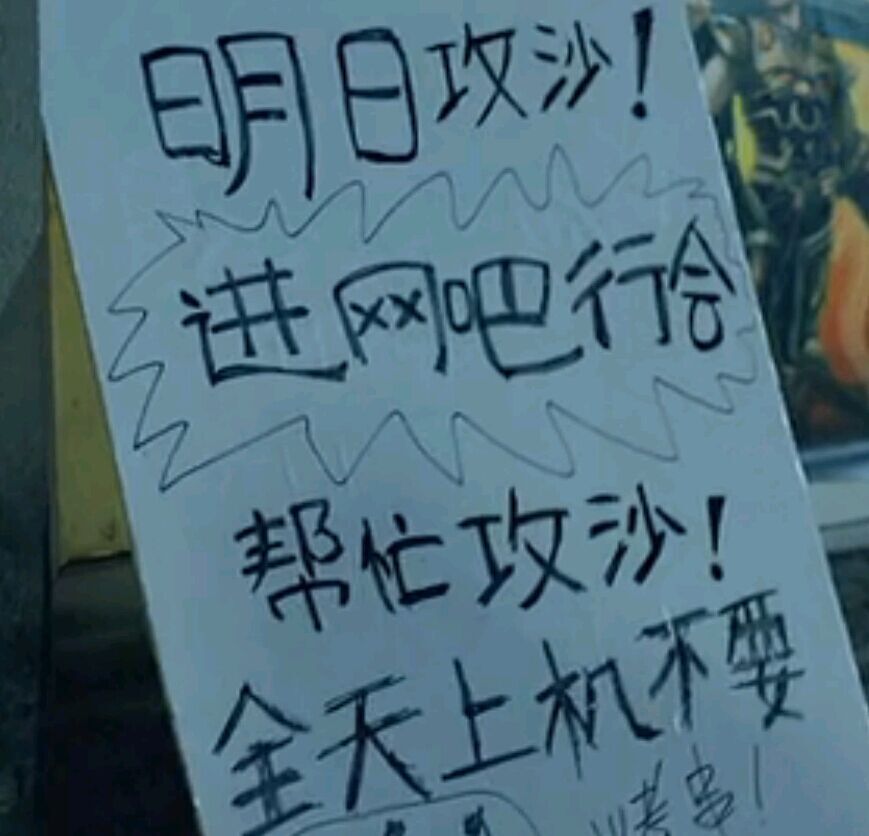 明日攻沙!
进网吧行会
帮忙攻沙!
全天上机不要